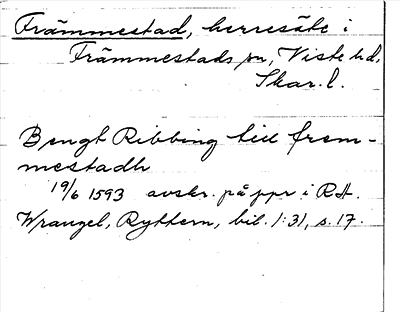 Främmestad, herresäte i
Främmestads sn, Viste hd,
Skar. l.
Bengt Ribbing till frem-
mestadh
19/6 1593 avskr. på ppr i RA.
Wrangel, Ryttern, bil. 1:31, s. 17.